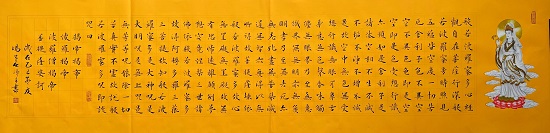 般若波羅蜜多心經
觀自在菩薩行深般
若波羅蜜多時照見
五蘊皆空度一切苦
厄舍利子色不異空
空不異色色即是空
空即是色受想行識
亦復如是舍利子是
諸法空相不生不滅
不垢不淨不增不減
是故空中無色無受
想行識無眼耳鼻舌
身意無色聲香味觸
法無眼界乃至無意
識界無無明亦無無
明盡乃至無老死亦
無老死盡無苦集滅
道無智亦無得以無
所得故菩提薩埵依
般若波羅蜜多故心
無罣礙無罣礙故無
有恐怖遠離顛倒夢
想究竟涅槃三世諸
佛依般若波羅蜜多
故得阿耨多羅三藐
三菩提故知般若波
羅蜜多是大神咒是
大明咒是無上咒是
無等等咒能除一切
苦真實不虛故說般
若波羅蜜多咒即說
咒曰
揭帝揭帝
波羅揭帝
波羅僧揭帝
菩提薩婆訶